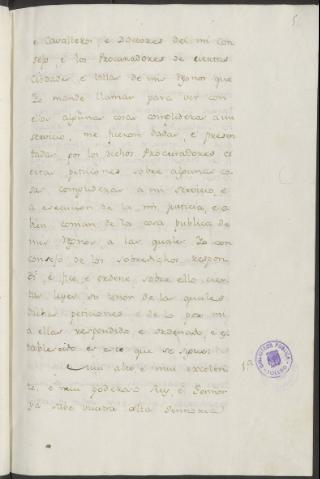 5
e Cavalleros, e Doctores del mi con
sejo, e los Procuradores de ciertas
Cibdades e Villas de mis Regnos que
Yo mandé llamar para ver con
ellos algunas cosas complideras a mi
servicio, me fueron dadas, e presen
tadas por los dichos Procuradores ci
ertas peticiones sobre algunas co
sas complideras a mi servicio, e
a execucion de la mi Justicia, e a
bien comun de la cosa publica de
mis Regnos, a las quales Yo con
consejo de los sobredichos respon
di, e fice, e ordené sobre ello cier
tas leyes su tenor de las quales
dichas peticiones e de lo por mi
a ellas respondido, e ordenado, e es
tablescido es este que se sigue.
Mui alto, e mui excelen
te, e mui poderoso Rey, e Señor
ya sabe vuestra alta Señoria
1.ª
BIBLIOTECA PUBLICA
TOLEDO